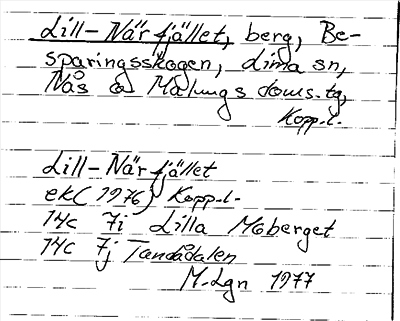 Lill-Närfjället, berg, Be-
sparingsskogen, Lima sn,
Nås o Malungs doms.tg,
Kopp.l.
Lill-Närfjället
ek (1976) Kopp.l.
14c 7i Lilla Moberget
14c 7j Tandådalen
M.Lgn 1977